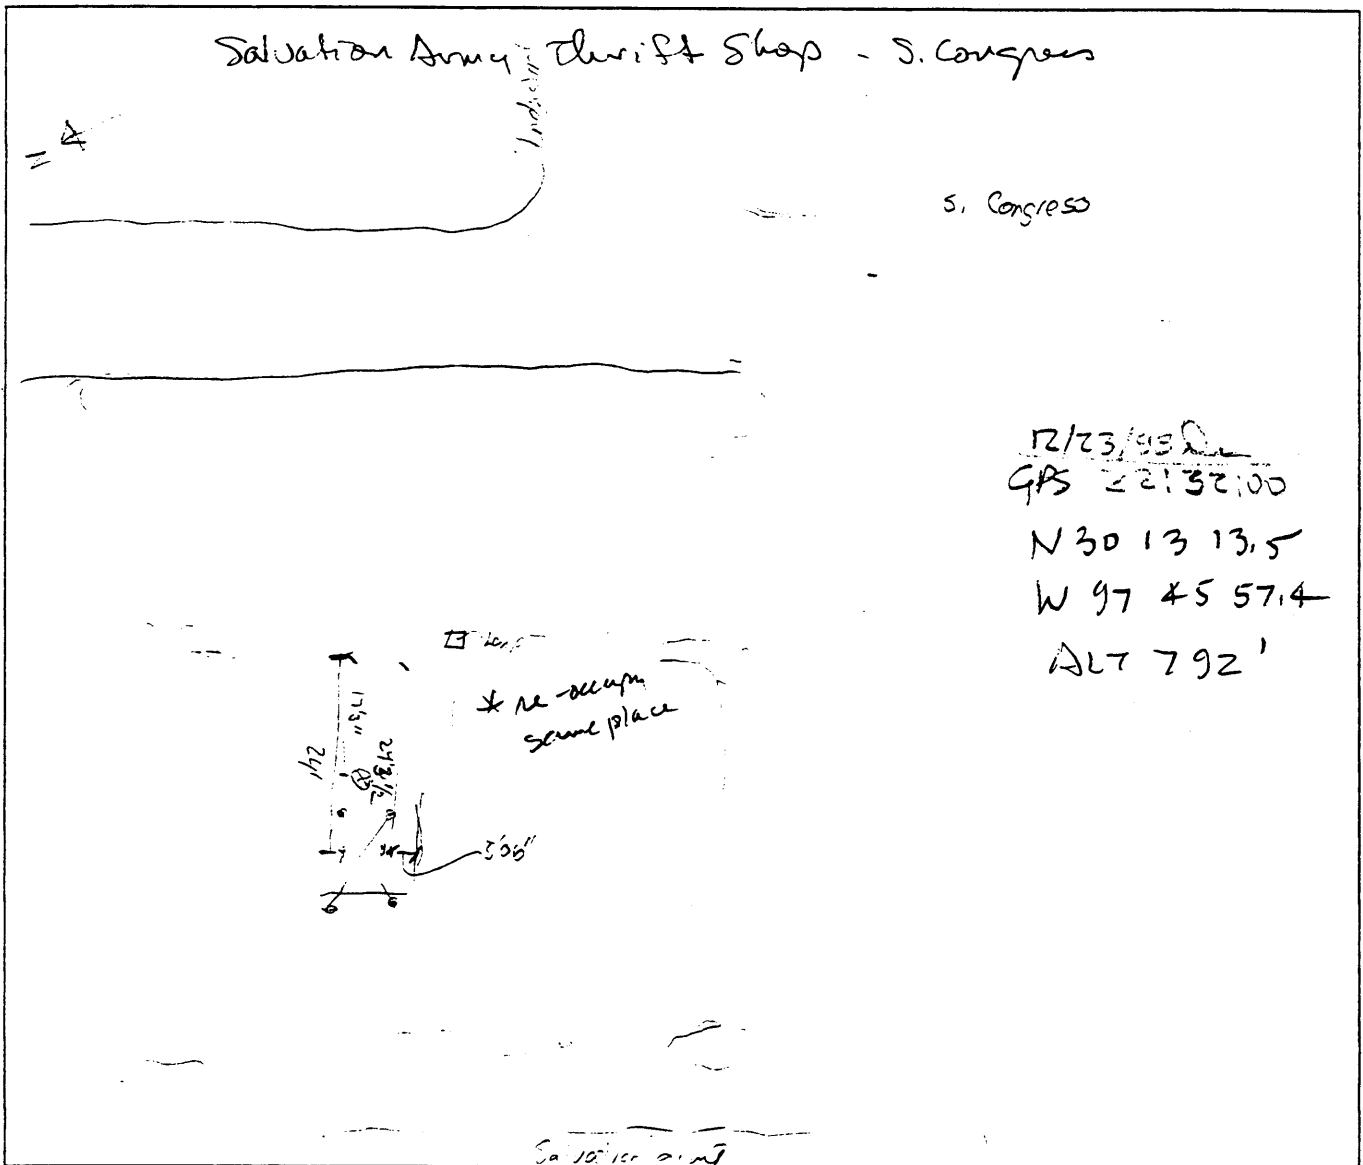 Salvation Army Thrift Shop - S. Congress
S. Congress
12/23/93
GPS 22:32:00
N 30 13 13.5
W 97 45 57.4
ALT 792'
* re-occupy
same place
17'5"
24'
24'3 1/2
Salvation Army